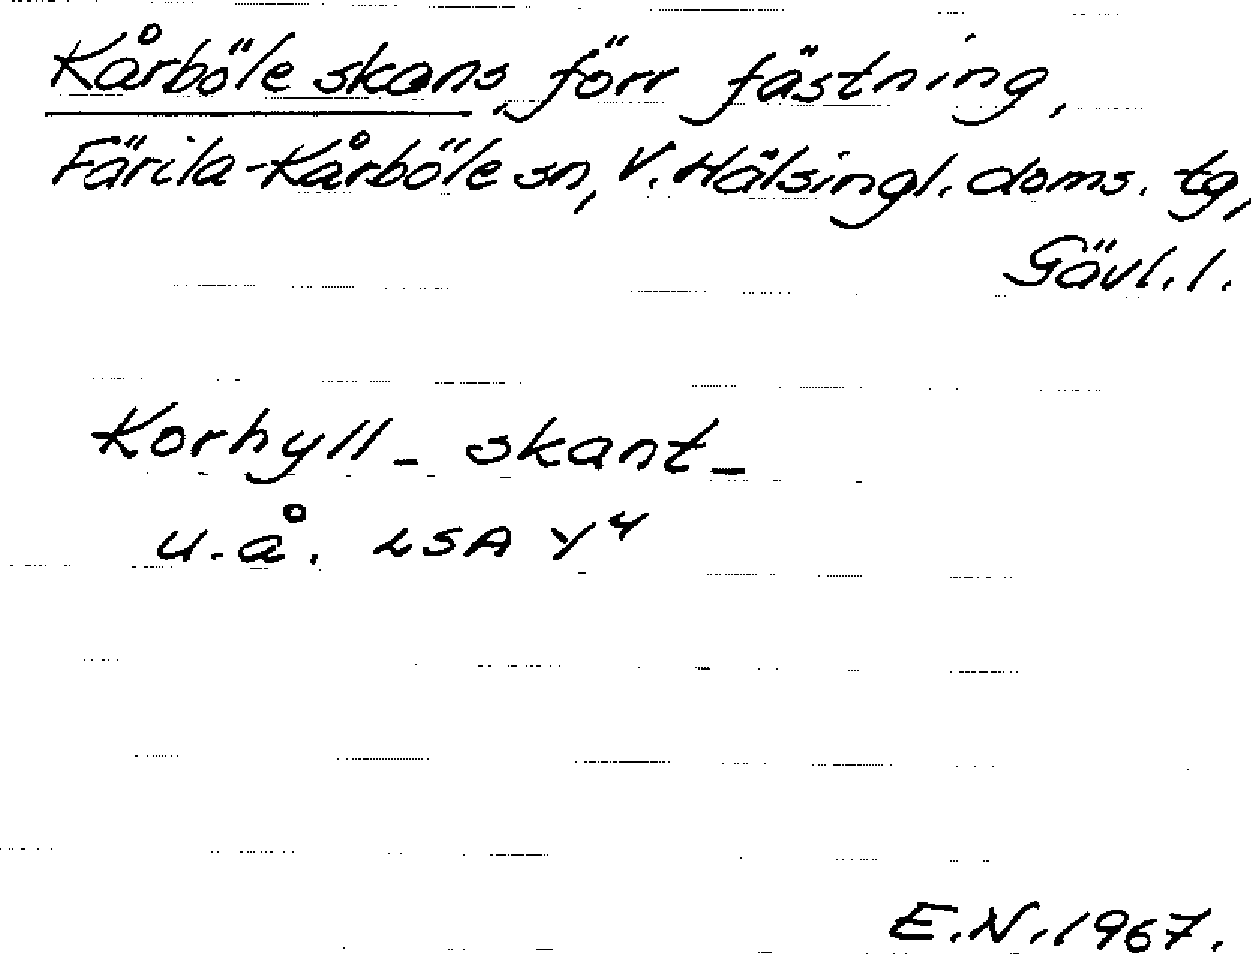 Kårböle skans, förr fästning,
Färila-Kårböle sn, V. Hälsingl. doms. tg,
Gävl. l.
Korhyll - skant -
u. å. LSA Y⁴
E.N. 1967.